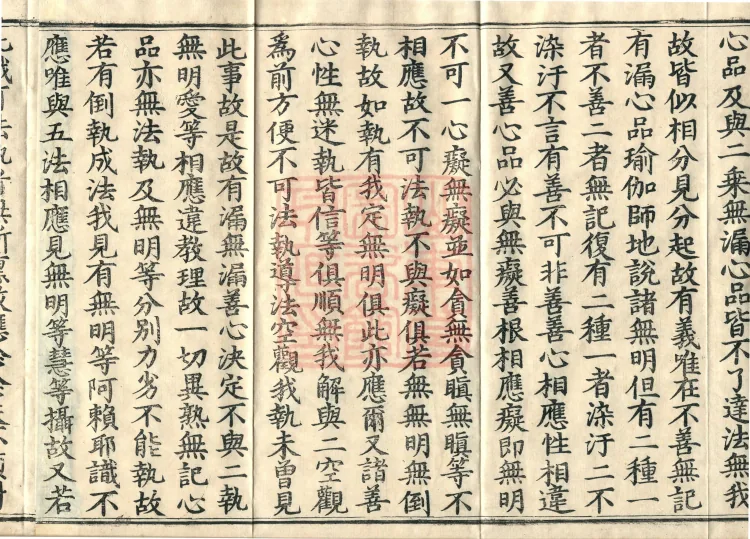 心品及與二乘無漏心品皆不了達法無我
故皆似相分見分起故有義唯在不善無記
有漏心品瑜伽師地說諸無明但有二種一
者不善二者無記復有二種一者染汙二不
染汙不言有善不可非善善心相應性相違
故又善心品必與無癡善根相應癡即無明
不可一心癡無癡並如貪無貪瞋無瞋等不
相應故不可法執不與癡俱若無無明無倒
執故如執有我定無明俱此亦應爾又諸善
心性無迷執皆信等俱順無我解與二空觀
為前方便不可法執導法空觀我執未曾見
此事故是故有漏無漏善心決定不與二執
無明愛等相應違教理故一切異熟無記心
品亦無法執及無明等分別力劣不能執故
若有倒執成法我見有無明等阿賴耶識不
應唯與五法相應見無明等慧等攝故又若